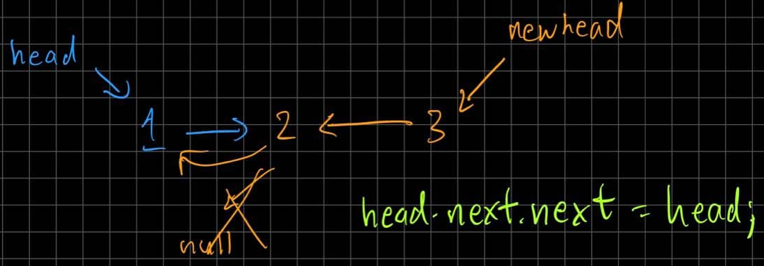 newhead
head
1 2 3
null
head.next.next = head;